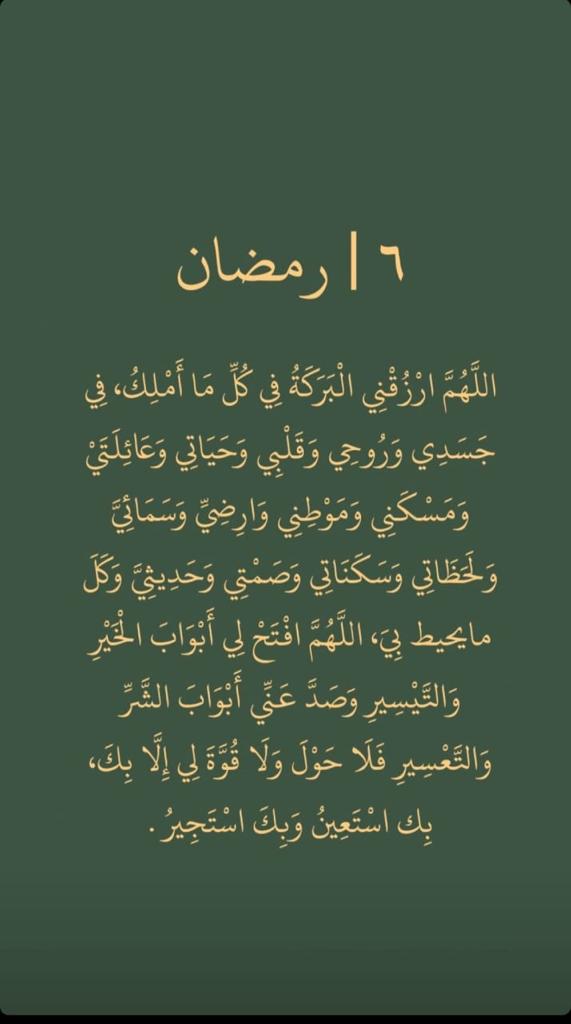 ٦ | رمضان
اللَّهُمَّ ارْزُقْنِي الْبَرَكَةُ فِي كُلِّ مَا أَمْلِكُ، فِي
جَسَدِي وَرُوحِي وَقَلْبِي وَحَيَاتِي وَعَائِلَتَيْ
وَمَسْكَنِي وَمَوْطِنِي وَارِضِيِّ وَسَمَائِيَّ
وَلَحَظَاتِي وَسَكَنَاتِي وَصَمْتِي وَحَدِيثِيَّ وَكَلَ
مايحيط بِيَ، اللَّهُمَّ افْتَحْ لِي أَبْوَابَ الْخَيْرِ
وَالتَّيْسِيرِ وَصَدَّ عَنِّي أَبْوَابَ الشَّرِّ
وَالتَّعْسِيرِ فَلَا حَوْلَ وَلَا قُوَّةَ لِي إِلَّا بِكَ،
بِك اسْتَعِينُ وَبِكَ اسْتَجِيرُ .